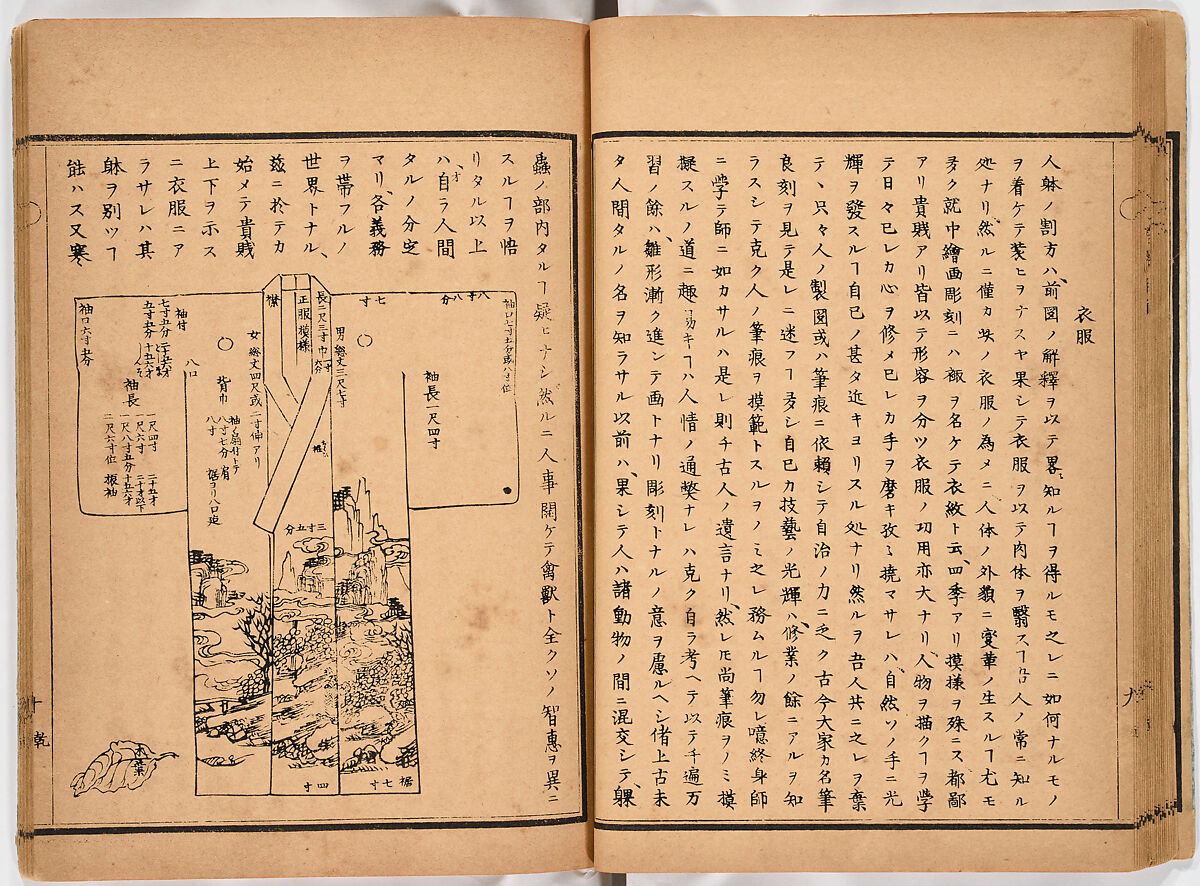 衣服
人躰ノ割方ハ前図ノ解釋ヲ以テ畧知ルヿヲ得ルモ之レニ如何ナルモノ
ヲ着ケテ装ヒヲナスヤ果シテ衣服ヲ以テ肉体ヲ翳スヿハ人ノ常ニ知ル
処ナリ然ルニ僅カ此ノ衣服ノ為メニ人体ノ外貌ニ変革ノ生スルヿ尤モ
多ク就中繪画彫刻ニハ衣ヲ名ケテ衣紋ト云四季アリ摸様ヲ殊ニス都鄙
アリ貴賤アリ皆以テ形容ヲ分ツ衣服ノ功用亦大ナリ人物ヲ描クヿヲ学
テ日々已レカ心ヲ修メ已レカ手ヲ磨キ孜〻撓マサレハ自然ソノ手ニ光
輝ヲ發スルヿ自己ノ甚タ近キヨリスル処ナリ然ルヲ吾人共ニ之レヲ棄
テ、只々人ノ製図或ハ筆痕ニ依頼シテ自治ノ力ニ乏ク古今大家カ名筆
良刻ヲ見テ是レニ迷フヿ多シ自已カ技藝ノ光輝ハ修業ノ餘ニアルヲ知
ラスシテ克ク人ノ筆痕ヲ摸範トスルヲノミ之レ務ムルヿ勿レ噫終身師
ニ学テ師ニ如カサルハ是レ則チ古人ノ遺言ナリ然レ𪜈尚筆痕ヲノミ摸
擬スルノ道ニ趣易キヿハ人情ノ通獘ナレハ克ク自ラ考ヘテ以テ千遍万
習ノ餘ハ雛形漸ク進ンテ画トナリ彫刻トナルノ意ヲ慮ルヘシ偖上古未
タ人間タルノ名ヲ知ラサル以前ハ果シテ人ハ諸動物ノ間ニ混交シテ、裸
九
蟲ノ部内タルヿ疑ヒナシ然ルニ人事開ケテ禽獸ト全クソノ智惠ヲ異ニ
スルヿヲ悟
リタル以上
ハ自ラ人間
タルノ分定
マリ、各義務
ヲ帯フルノ
世界トナル、
茲ニ於テカ
始メテ貴賎
上下ヲ示ス
ニ衣服ニア
ラサレハ其
躰ヲ別ツヿ
能ハス又寒
袖口七寸五分或ハ八寸位
七寸
八寸八分
袖長一尺四寸
男総丈三尺七寸
長二尺三寸巾一寸六分
正服摸様
襟
女総丈四尺或二寸伸アリ
背巾
袖ゟ肩付トテ肩
八寸七分
八寸
裾ヨリ八口迠
八口
袖付
七寸五分
五寸五分
袖口六寸五分
袖長
一尺四寸 二十五才
一尺六寸 二十才以下
一尺八寸五分 十五六才
二尺六寸位 振袖
三寸五分
四寸
裾七寸
木葉
十
乾